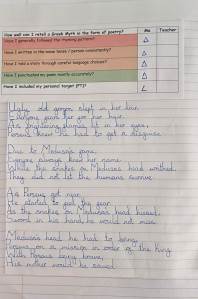 How well can I retell a Greek Myth in the form of poetry? Me Teacher
Have I generally followed the rhyming pattern?
Have I written in the same tense / person consistently?
Have I told a story through careful language choices?
Have I punctuated my poem mostly accurately?
Have I included my personal target (PT)?
Ugly old gorgon slept in her lair
Everyone gave her
As frightening flames lit in her eyes,
Perseus knew he had to get a disguise
Due to Medusa's
Everyone always knew her name
While the snakes on Medusa's head writhed
They did not let the humans survive
As Perseus got near
He started to feel the fear
As the snakes on Medusa's head hissed,
Sword in his hand, he would not miss
Medusa's head he had to bring
Perseus on a mission in order of the King
With Perseus being brave,
His mother would be saved